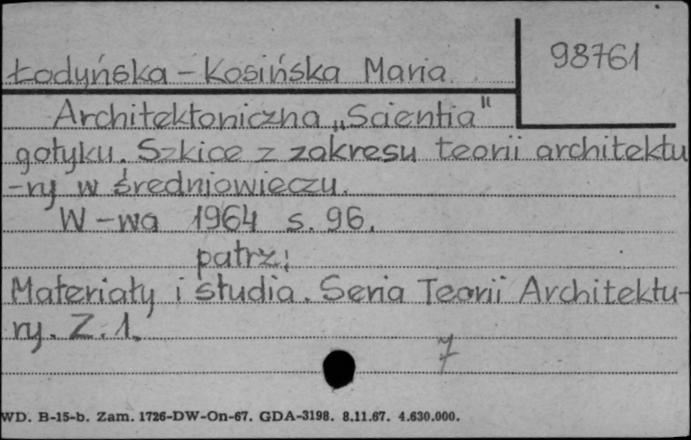 98761
Ładyńska-Kosińska Maria
Architektoniczna „Scientia"
gotyku. Szkice z zakresu teorii architektu
-ry w średniowieczu.
W-wa 1964 s. 96.
patrz:
Materiały i studia. Seria Teorii Architektu-
ry. Z. 1.
7
WD. B-15-b. Zam. 1726-DW-On-67. GDA-3198. 8.11.67. 4.630.000.